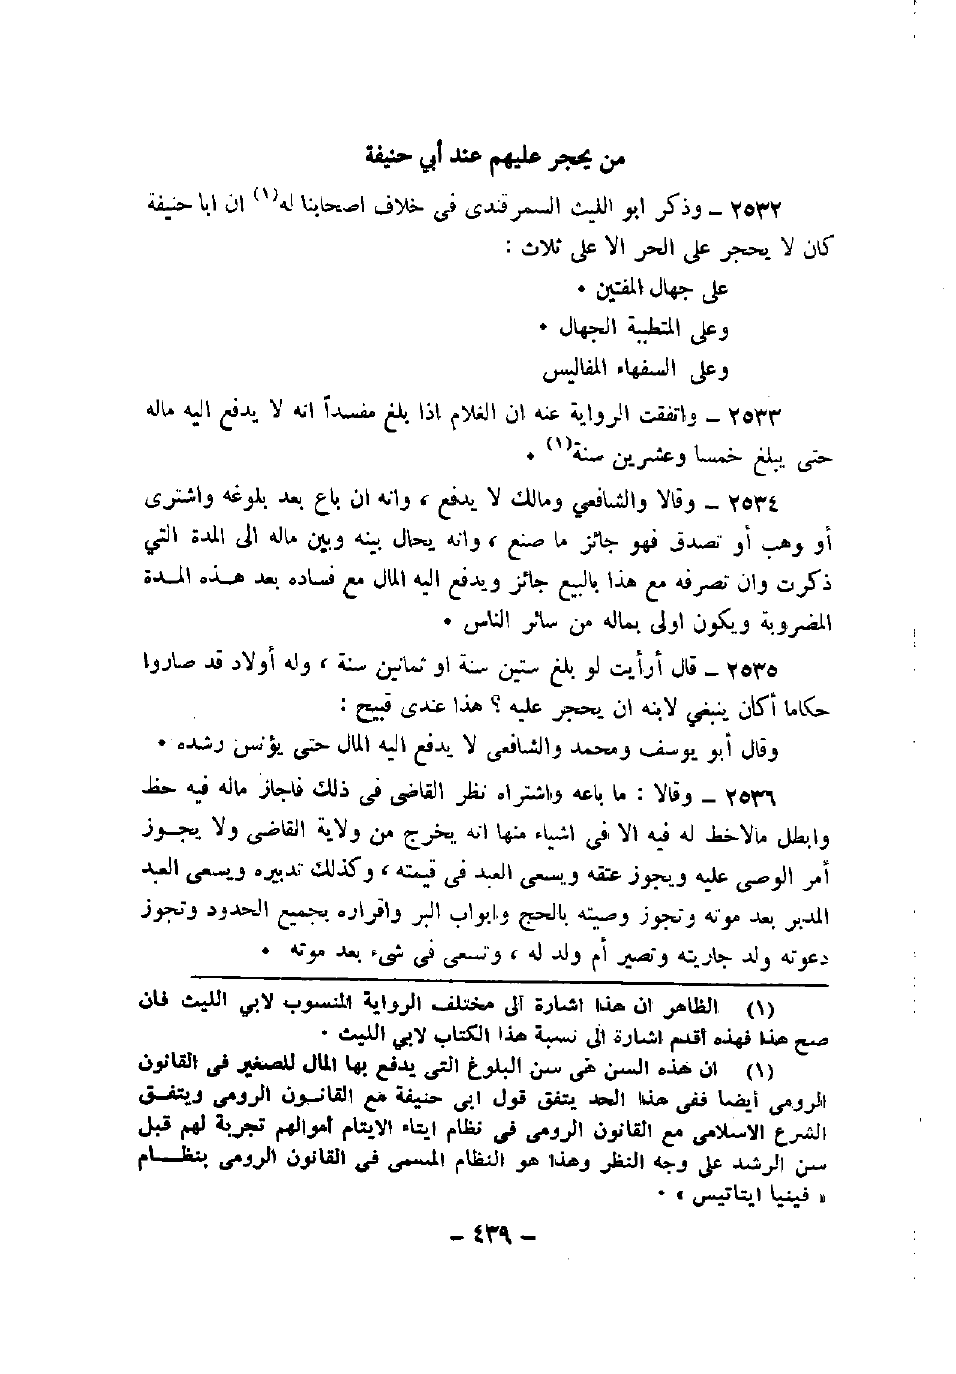 من يحجر عليهم عند أبي حنيفة
٢٥٣٢ ــ وذكر ابو الليث السمرقندى فى خلاف اصحابنا له(١) ان ابا حنيفة
كان لا يحجر على الحر الا على ثلاث :
على جهال المفتين ٠
وعلى المتطببة الجهال ٠
وعلى السفهاء المفاليس
٢٥٣٣ ــ واتفقت الرواية عنه ان الغلام اذا بلغ مفسداً انه لا يدفع اليه ماله
حتى يبلغ خمسا وعشرين سنة(١) ٠
٢٥٣٤ ــ وقالا والشافعي ومالك لا يدفع ، وانه ان باع بعد بلوغه واشترى
أو وهب أو تصدق فهو جائز ما صنع ، وانه يحال بينه وبين ماله الى المدة التي
ذكرت وان تصرفه مع هذا بالبيع جائز ويدفع اليه المال مع فساده بعد هــذه المــدة
المضروبة ويكون اولى بماله من سائر الناس ٠
٢٥٣٥ ــ قال أرأيت لو بلغ ستين سنة او ثمانين سنة ، وله أولاد قد صاروا
حكاما أكان ينبغي لابنه ان يحجر عليه ؟ هذا عندى قبيح :
وقال أبو يوسف ومحمد والشافعى لا يدفع اليه المال حتى يؤنس رشده ٠
٢٥٣٦ ــ وقالا : ما باعه واشتراه نظر القاضى فى ذلك فاجاز ماله فيه حظ
وابطل مالاخط له فيه الا فى اشياء منها انه يخرج من ولاية القاضى ولا يجــوز
أمر الوصى عليه ويجوز عتقه ويسعى العبد فى قيمته ، وكذلك تدبيره ويسعى العبد
المدبر بعد موته وتجوز وصيته بالحج وابواب البر واقراره بجميع الحدود وتجوز
دعوته ولد جاريته وتصير أم ولد له ، وتسعى فى شىء بعد موته ٠
(١) الظاهر ان هذا اشارة الى مختلف الرواية المنسوب لابي الليث فان
صح هذا فهذه أقدم اشارة الى نسبة هذا الكتاب لابي الليث ٠
(١) ان هذه السن هى سن البلوغ التى يدفع بها المال للصغير فى القانون
الرومى أيضا ففى هذا الحد يتفق قول ابى حنيفة مع القانــون الرومى ويتفــق
الشرع الاسلامى مع القانون الرومى فى نظام ايتاء الايتام أموالهم تجربة لهم قبل
سن الرشد على وجه النظر وهذا هو النظام المسمى فى القانون الرومى بنظــام
« فينيا ايتاتيس » ٠
ــ ٤٣٩ ــ